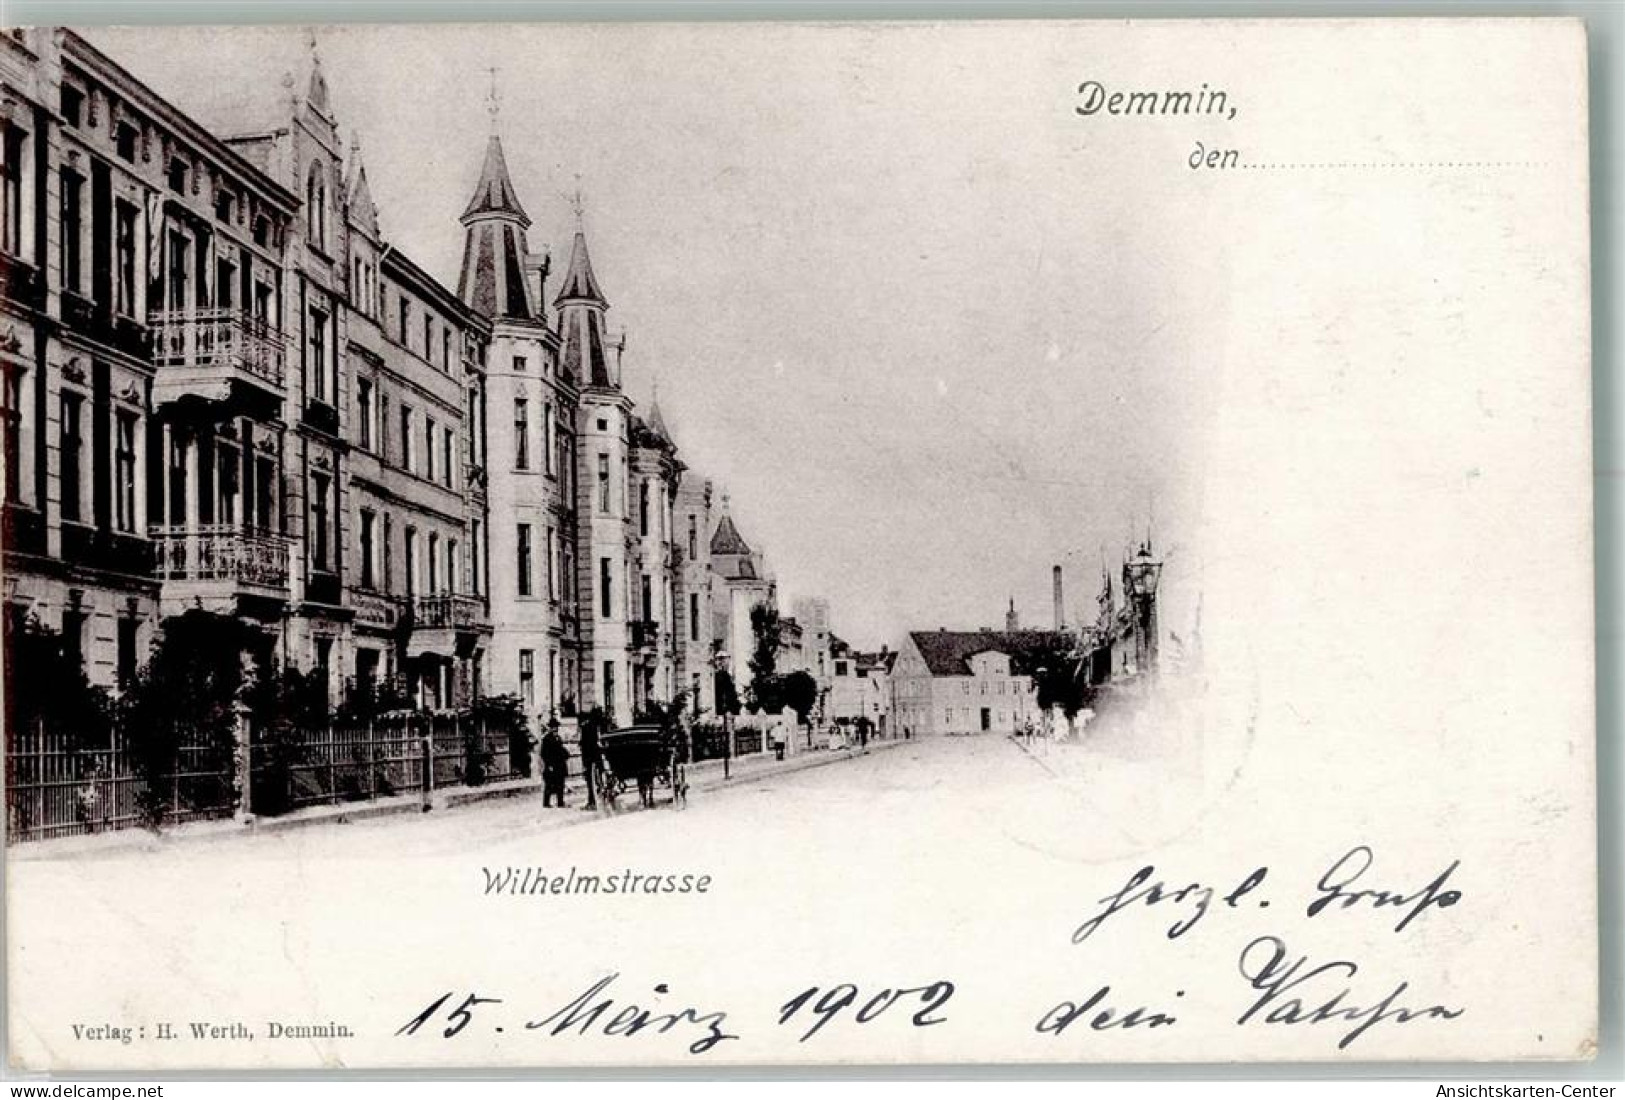 Demmin,
den
Wilhelmstrasse
herzl. Gruß
15. März 1902 dein
Verlag: H. Werth, Demmin.
www.delcampe.net
Ansichtskarten-Center